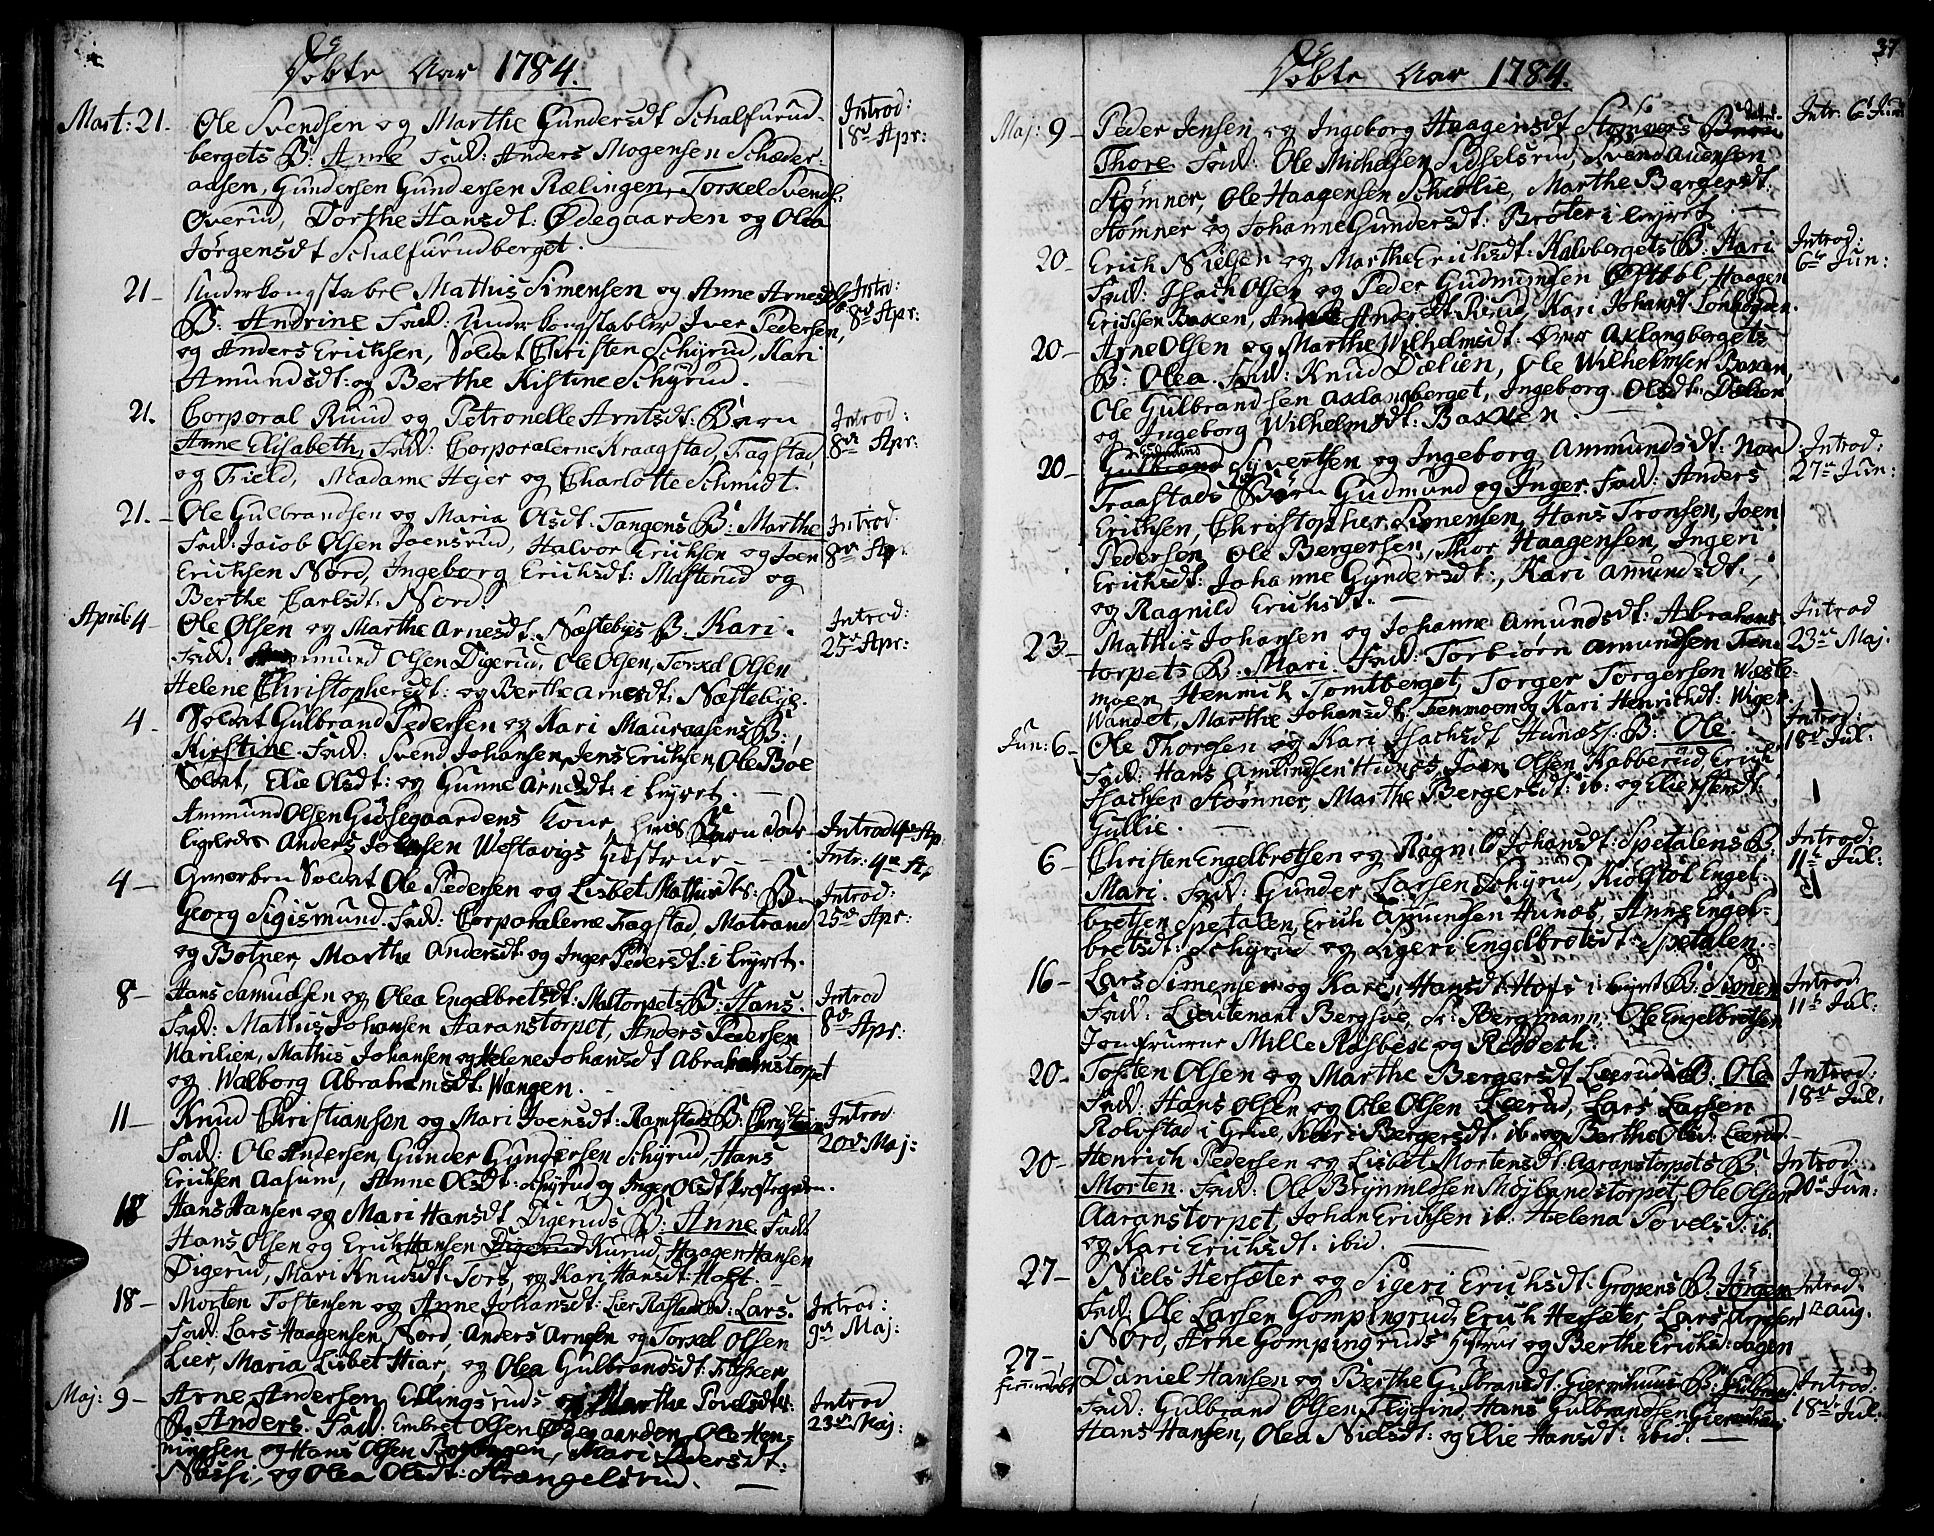 Døbte Aar 1784.
Mart: 21. Ole Svendsen og Marthe Gundersdt Schalfurud-
bergets B: Arne Fad: Anders Mogensen Schæder-
aasen, Gundersen Gundersen Rælingen, Torkel Svends:
Øverud, Dorthe Hansdt: Ødegaarden og Olea
Jørgensdt Schalfurudberget.
Introd: 18de Apr:
21 - Underkongstabel Mathis Simensen og Anne Arnesdt
B: Andrine Fad: Underkongstabler Iver Pedersen,
og Anders Ericksen, Soldat Christen Schyrud, Kari
Amundsdt: og Berthe Kistine Schyrud.
Introd: 8de Apr:
21. Corporal Ruud og Petronelle Arntsdt: Barn
Anne Elisabeth, Fad: Corporalerne Kraagstad, Fagstad
og Field, Madame Hejer og Charlotte Schmidt.
Introd: 8de Apr:
21. - Ole Gulbrandsen og Maria Olsdt. Tangens B: Marthe
Fad: Jacob Olsen Joensrud, Halvor Ericksen og Joen
Ericksen Nord, Ingeborg Ericksdt: Masterud og
Berthe Carlsdt. Nord.
Introd: 8de Apr.
April: 4 - Ole Olsen og Marthe Arnesdt. Næstebyes B. Kari.
Fad: Ammund Olsen Digerud, Ole Olsen, Torkel Olsen
Helene Christophersdt: og Berthe Arnesdt: Næstebye.
Introd: 25de Apr:
4 Soldat Gulbrand Pedersen og Kari Mauraasens B:
Kirstine Fad: Svend Johansen, Jens Ericksen, Ole Boe
Soldat, Elie Olsdt: og Gunne Arnesdt: i Eyret.
Ammund Olsen Giøsegaardens Kone, hvis Barn døde
ligeledes Anders Johansen Westavigs Hustrue -
Introd 4de Ap
Intr: 4de Ap
4 - Gevorben Soldat Ole Pedersen og Lisbet Mathisdt: B
Georg Sigismund. Fad: Corporalerne Fagstad, Matrand
og Botner, Marthe Andersdt og Inger Pedersdt: i Eyret.
Introd: 25de Apr:
8 - Hans Samuelsen og Olea Engelbretsdt: Maltorpets B: Hans.
Fad: Mathis Johansen Aaranstorpet, Anders Pedersen
Varilien, Mathis Johansen og Helene Johansdt Abrahamstorpet
og Walborg Abrahamsdt. Wangen.
Introd 8de Apr:
11 - Knud Christiansen og Mari Joensdt: Ramstads B: Christian
Fad: Ole Andersen, Gunder Gundersen Schyrud, Hans
Ericksen Aasum, Anne Olsdt: Schyrud og Inger Olsdt Prestegrden.
Introd 20de Maj:
18 Hans Hansen og Mari Hansdt Digeruds B: Anne Fad:
Hans Olsen og Erick Hansen Digerud Rurud, Haagen Hansen
Digerud, Mari Knudsdt. Tors, og Kari Hansdt: Holt.
18 - Morten Tostensen og Anne Johansdt: Lier Rastads B: Lars.
Fad: Lars Haagensen Nord, Anders Arnesen og Torkel Olsen
Lier, Maria Lisbet Hiar, og Olea Gulbrandsdt: Fløsker
Introd: 9de Maj:
Maj: 9 - Arne Andersen Ellingsruds og Marthe Povelsdtr:
B. Anders. Fad: Embret Olsen Ødegaarden, Ole Hen-
ningsen og Hans Olsen, Mari Pedersdt:
Næssi, og Olea Olsdt: Strængelsrud.
Introd 23de Maj:
Døbte Aar 1784.
37
Maj: 9 - Peder Jensen og Ingeborg Haagensdt Stømners Barn
Thore. Fad: Ole Michelsen Sidselsrud, Svend Auensen
Stømner, Ole Haagensen Schielie, Marthe Bergersdt:
Stømner og Johanne Gundersdt: Brøter i Eyret.
Intr. 6te Jun
20 - Erick Nielsen og Marthe Ericksdt: Kalvbergets B: Kari
Fad: Isach Olsen og Peder Gudmundsen Østbøl, Haagen
Ericksen Baxen, Andersdt. Ruud, Kari Johansdt
Introd: 6te Jun:
20 - Arne Olsen og Marthe Wilhelmsdt: Axlangbergets
B: Olea. Fad: Knud Dælien, Ole Wilhelmsen Baxen,
Ole Gulbrandsen Axlangberget, Ingeborg Olsdt: Dælien
og Ingeborg Wilhelmsdt: Baxen.
20 - Gudmund Syvertsen og Ingeborg Ammundsdt: Nord
Traastads Børn Gudmund og Inger. Fad: Anders
Ericksen, Christopher Simensen, Hans Tronsen, Joen
Pedersen, Ole Bergersen, Thor Haagensen, Ingeri
Ericksdt: Johanne Gundersdt:, Kari Amundsdt:
og Ragnild Ericksdt.
Introd: 27de Jun:
23 - Mathis Johansen og Johanne Amundsdt: Abrahams-
torpets B: Mari. Fad: Torbiørn Amundsen Fen-
moen, Henrich Tomtberget, Torger Torgersen Weste-
Wandet, Marthe Johansdt: Fenmoen og Kari Henrichdt: Wiger
Introd 23de Maj.
Jun: 6 - Ole Thorgsen og Kari Isachsdt Hunæss: B: Ole.
Fad: Hans Amundsen Hunæs, Joen Olsen Kabberud, Erick
Isachsen Stømner, Marthe Bergersdt: ib: og Elie
Gullie.
Introd: 18de Jul:
6 - Christen Engelbretsen og Ragnild Johansdt: Spetalens B.
Mari. Fad: Gunder Larsen Schyrud, Kiøstol Engel-
bretsen Spetalen, Erick Amundsen Hunæs, Anne Engel-
bretsdt: Schyrud og Sigeri Engelbretsdt: Spetalen.
Introd: 11te Jul:
16 - Lars Simensen og Kari Hansdt: Hofs i Eyret B: Simen
Fad: Lieutenant Bergsøe, Sr: Bergmann, Ole Engelbretsen
Jomfruerne Mille Rosbek og Redbeth.
Introd: 11te Jul:
20 - Tosten Olsen og Marthe Bergersdt Leeruds B. Ole
Fad: Hans Olsen og Ole Olsen Leerud, Lars Larsen
Rolvstad i Grue, Kari Bergersdt: ib: og Berthe Olsd: Leerud
Introd: 18de Jul:
20 - Henrich Pedersen og Lisbet Mortensdt: Aaranstorpets B:
Morten. Fad: Ole Brynnildsen Møylandstorpet, Ole Olsen
Aaranstorpet, Johan Ericksen ib: Helena Povelsd: ib:
og Kari Ericksdt: ibid.
Introd: 20de Jun:
27 - Niels Hersæter og Sigeri Ericksdt: Gropens B: Jørgen
Fad: Ole Larsen Gompingrud, Erick Hersæter, Lars Arnesen
Nord, Arne Gompingruds Hustrue og Berthe Ericksd: Sagen
Introd: 1te Aug.
27 - Daniel Hansen og Berthe Gulbrandsdt: Giermshuus B: Gulbrand.
Fad: Gulbrand Olsen Flysind, Hans Gulbrandsen Giermshuus
Hans Hansen, Olea Nielsdt: og Elie Hansdt: ibid.
Introd: 18de Jul: